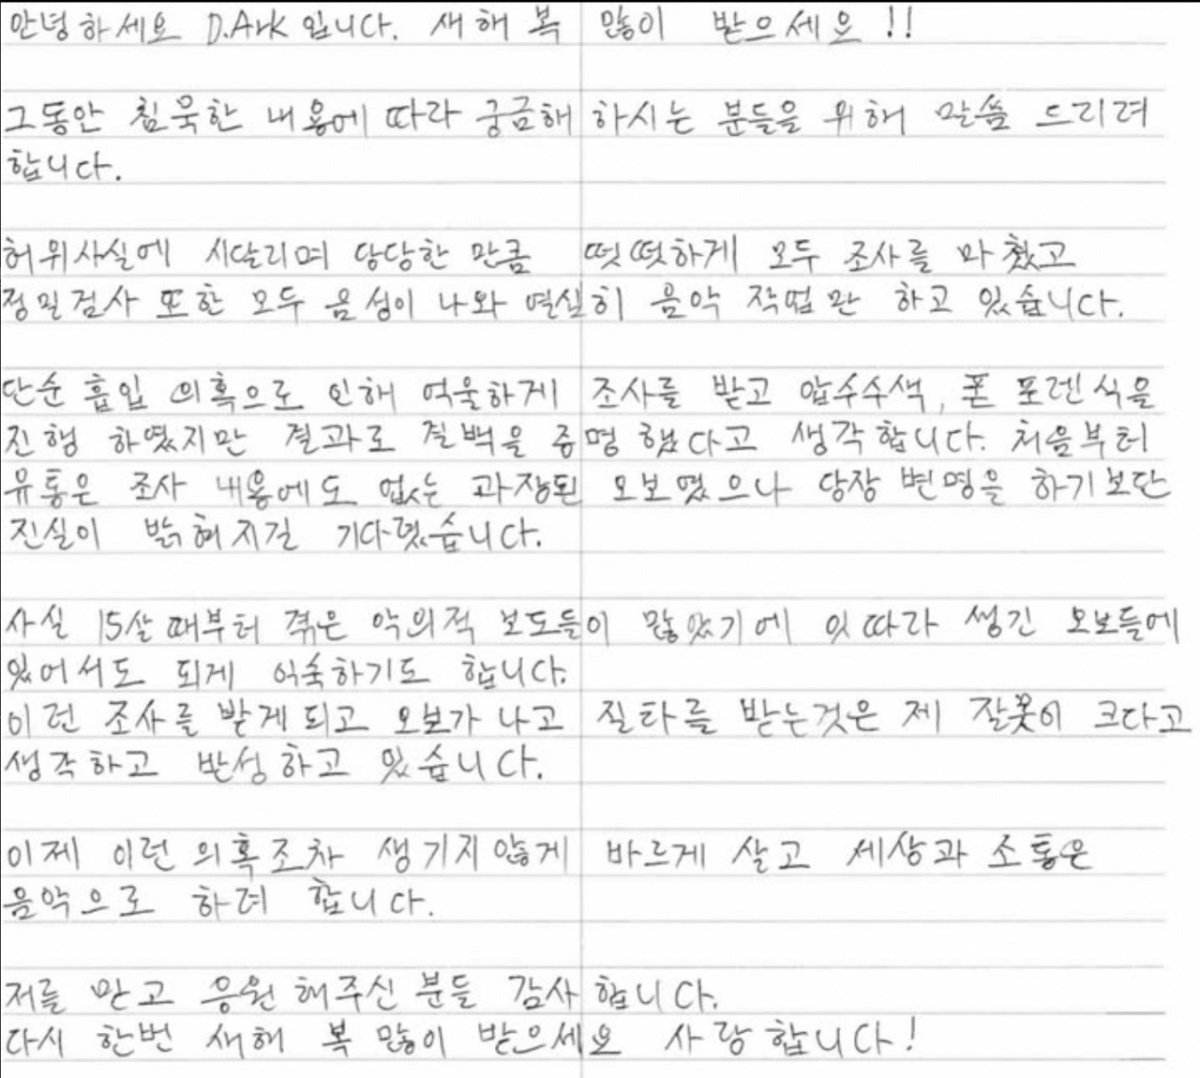 안녕하세요 D.Ark 입니다. 새해 복 많이 받으세요!!
그동안 침묵한 내용에 따라 궁금해 하시는 분들을 위해 말씀 드리려
합니다.
허위사실에 시달리며 당당한 만큼 떳떳하게 모두 조사를 마쳤고
정밀검사 또한 모두 음성이 나와 열심히 음악 작업만 하고 있습니다.
단순 흡입 의혹으로 인해 억울하게 조사를 받고 압수수색, 폰 포렌식을
진행 하였지만 결과로 결백을 증명 했다고 생각합니다. 처음부터
유통은 조사 내용에도 없는 과장된 오보였으나 당장 변명을 하기보단
진실이 밝혀지길 기다렸습니다.
사실 15살 때부터 겪은 악의적 보도들이 많았기에 잇따라 생긴 오보들에
있어서도 되게 익숙하기도 합니다.
이런 조사를 받게 되고 오보가 나고 질타를 받는것은 제 잘못이 크다고
생각하고 반성하고 있습니다.
이제 이런 의혹조차 생기지않게 바르게 살고 세상과 소통은
음악으로 하려 합니다.
저를 믿고 응원 해주신 분들 감사합니다.
다시 한번 새해 복 많이 받으세요 사랑합니다!